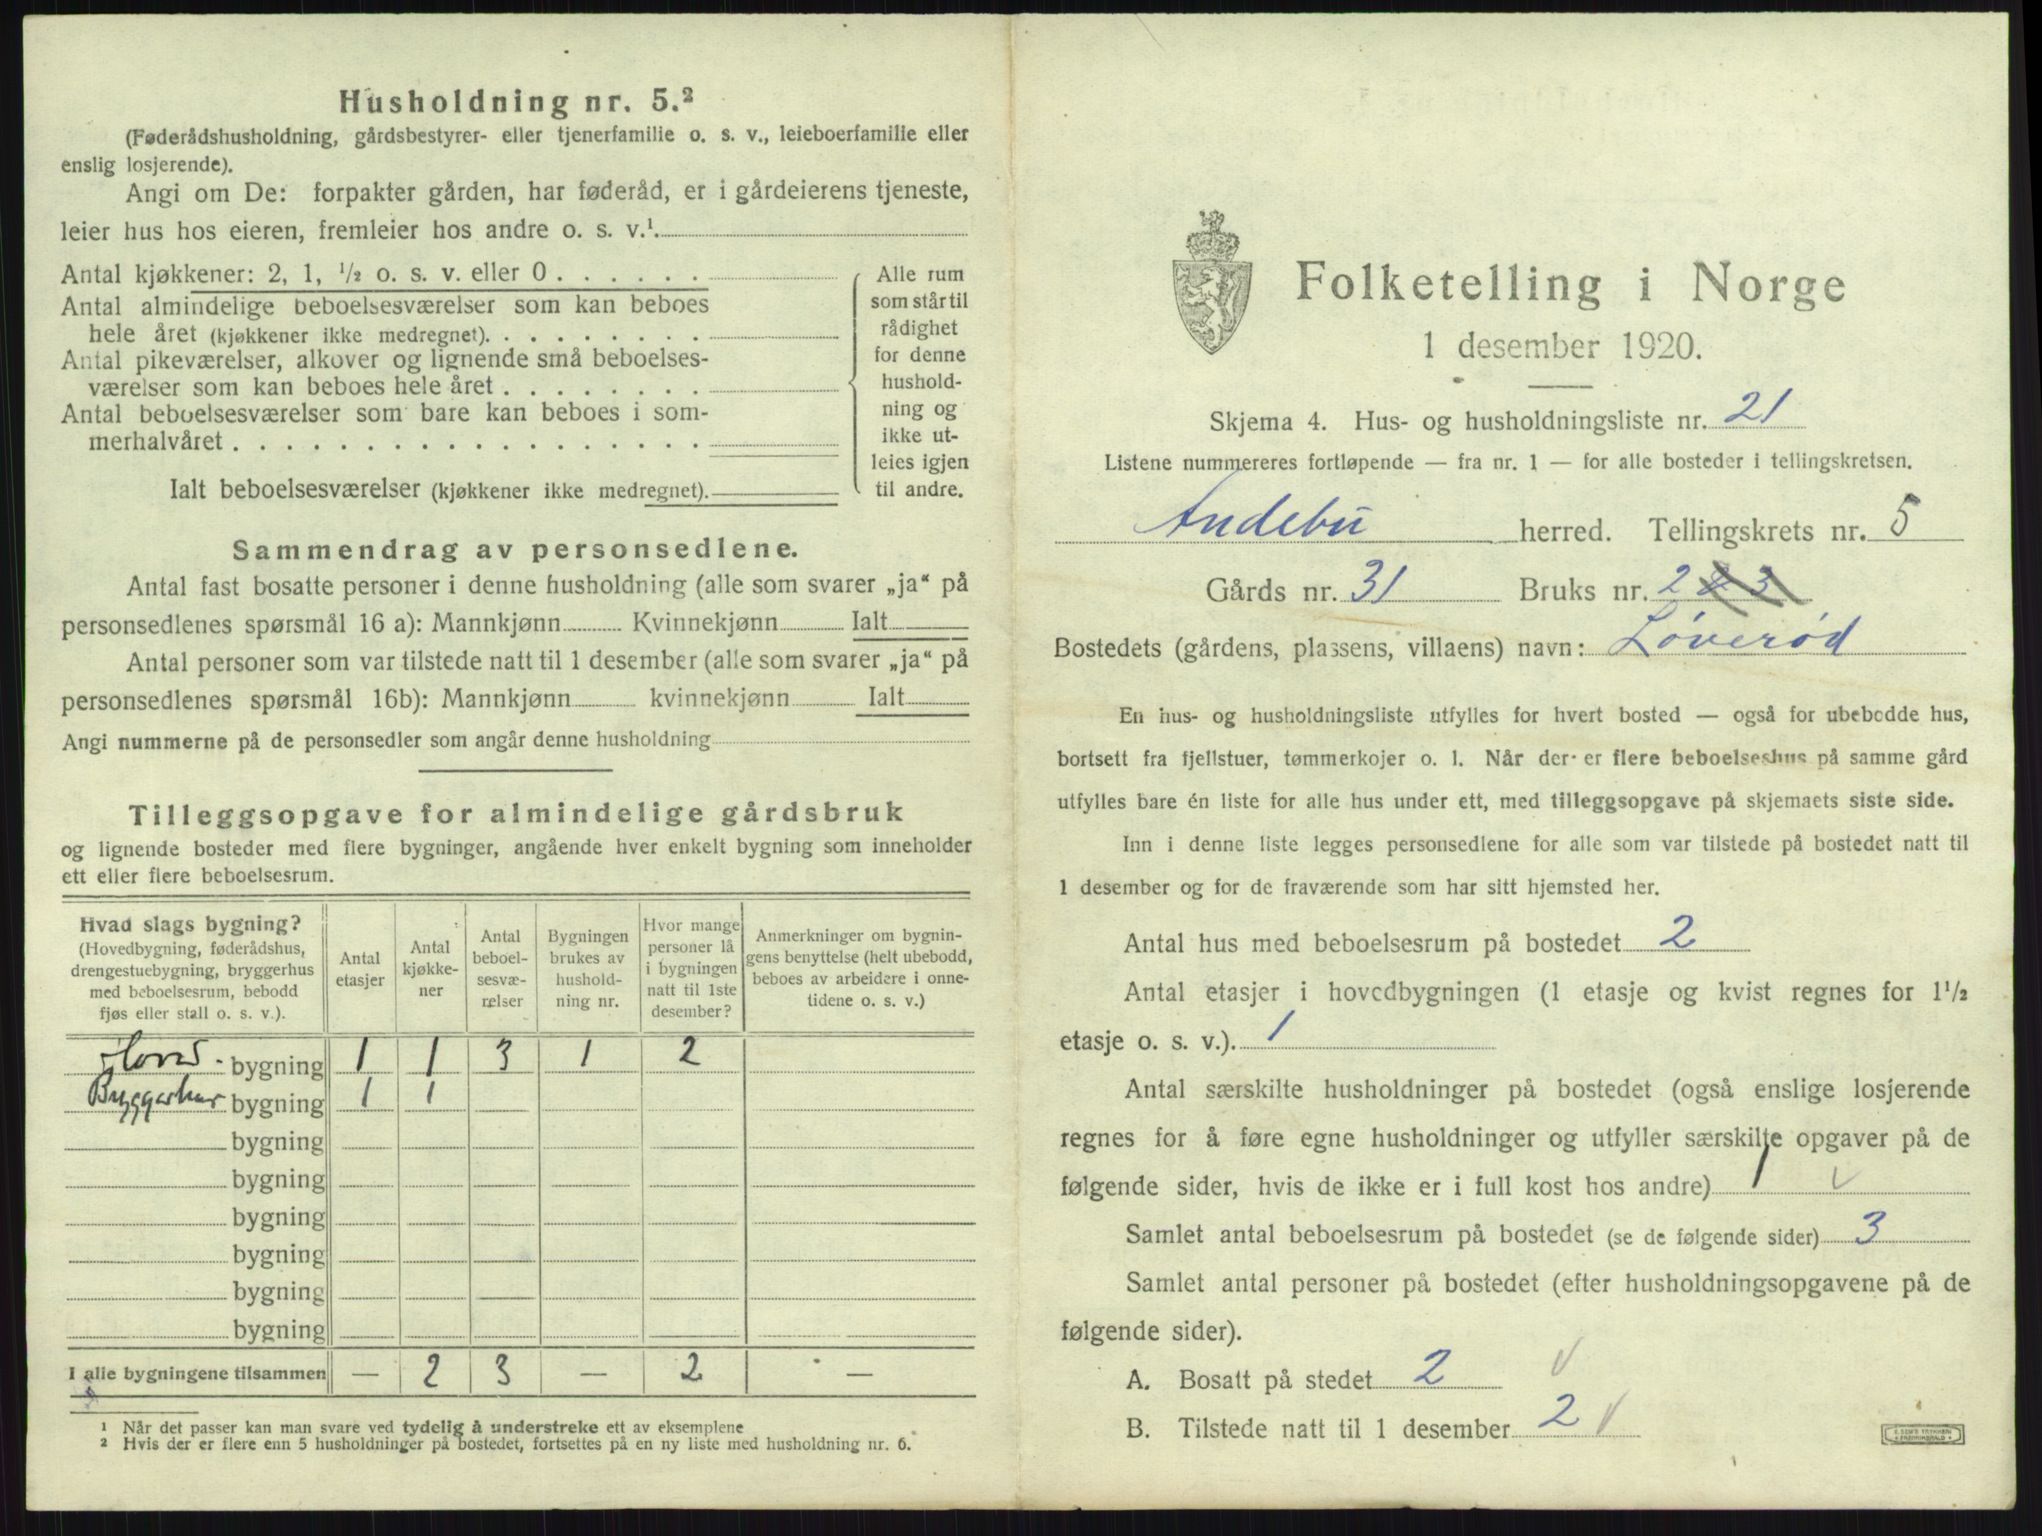 Husholdning nr. 5.²
(Føderådshusholdning, gårdsbestyrer- eller tjenerfamilie o. s. v., leieboerfamilie eller
enslig losjerende).
Angi om De: forpakter gården, har føderåd, er i gårdeierens tjeneste,
leier hus hos eieren, fremleier hos andre o. s. v.¹.
Antal kjøkkener: 2, 1, ½ o. s. v. eller 0 . . . . . .
Antal almindelige beboelsesværelser som kan beboes
hele året (kjøkkener ikke medregnet). . . . . . . . .
Antal pikeværelser, alkover og lignende små beboelses-
værelser som kan beboes hele året . . . . . . . .
Antal beboelsesværelser som bare kan beboes i som-
merhalvåret . . . . . . . . . . . . . . . . . .
Ialt beboelsesværelser (kjøkkener ikke medregnet).
Alle rum
som står til
rådighet
for denne
hushold-
ning og
ikke ut-
leies igjen
til andre.
Sammendrag av personsedlene.
Antal fast bosatte personer i denne husholdning (alle som svarer „ja“ på
personsedlenes spørsmål 16 a): Mannkjønn Kvinnekjønn Ialt
Antal personer som var tilstede natt til 1 desember (alle som svarer „ja“ på
personsedlenes spørsmål 16b): Mannkjønn kvinnekjønn Ialt
Angi nummerne på de personsedler som angår denne husholdning
Tilleggsopgave for almindelige gårdsbruk
og lignende bosteder med flere bygninger, angående hver enkelt bygning som inneholder
ett eller flere beboelsesrum.
Hvad slags bygning?
(Hovedbygning, føderådshus,
drengestuebygning, bryggerhus
med beboelsesrum, bebodd
fjøs eller stall o. s. v.).
Antal
etasjer
Antal
kjøkke-
ner
Antal
beboel-
sesvæ-
relser
Bygningen
brukes av
hushold-
ning nr.
Hvor mange
personer lå
i bygningen
natt til 1ste
desember?
Anmerkninger om bygnin-
gens benyttelse (helt ubebodd,
beboes av arbeidere i onne-
tidene o. s. v.)
Hoved- bygning 1 1 3 1 2
Bryggerhus bygning 1 1
bygning
bygning
bygning
bygning
bygning
bygning
I alle bygningene tilsammen — 2 3 — 2 —
¹ Når det passer kan man svare ved tydelig å understreke ett av eksemplene
² Hvis der er flere enn 5 husholdninger på bostedet, fortsettes på en ny liste med husholdning nr. 6.
Folketelling i Norge
1 desember 1920.
Skjema 4. Hus- og husholdningsliste nr. 21
Listene nummereres fortløpende — fra nr. 1 — for alle bosteder i tellingskretsen.
Andebu herred. Tellingskrets nr. 5
Gårds nr. 31 Bruks nr. 2 & 3
Bostedets (gårdens, plassens, villaens) navn: Løverød
En hus- og husholdningsliste utfylles for hvert bosted — også for ubebodde hus,
bortsett fra fjellstuer, tømmerkojer o. l. Når der er flere beboelseshus på samme gård
utfylles bare én liste for alle hus under ett, med tilleggsopgave på skjemaets siste side.
Inn i denne liste legges personsedlene for alle som var tilstede på bostedet natt til
1 desember og for de fraværende som har sitt hjemsted her.
Antal hus med beboelsesrum på bostedet 2
Antal etasjer i hovedbygningen (1 etasje og kvist regnes for 1½
etasje o. s. v.). 1
Antal særskilte husholdninger på bostedet (også enslige losjerende
regnes for å føre egne husholdninger og utfyller særskilte opgaver på de
følgende sider, hvis de ikke er i full kost hos andre) 1 ✓
Samlet antal beboelsesrum på bostedet (se de følgende sider) 3
Samlet antal personer på bostedet (efter husholdningsopgavene på de
følgende sider).
A. Bosatt på stedet 2 ✓
B. Tilstede natt til 1 desember 2 ✓